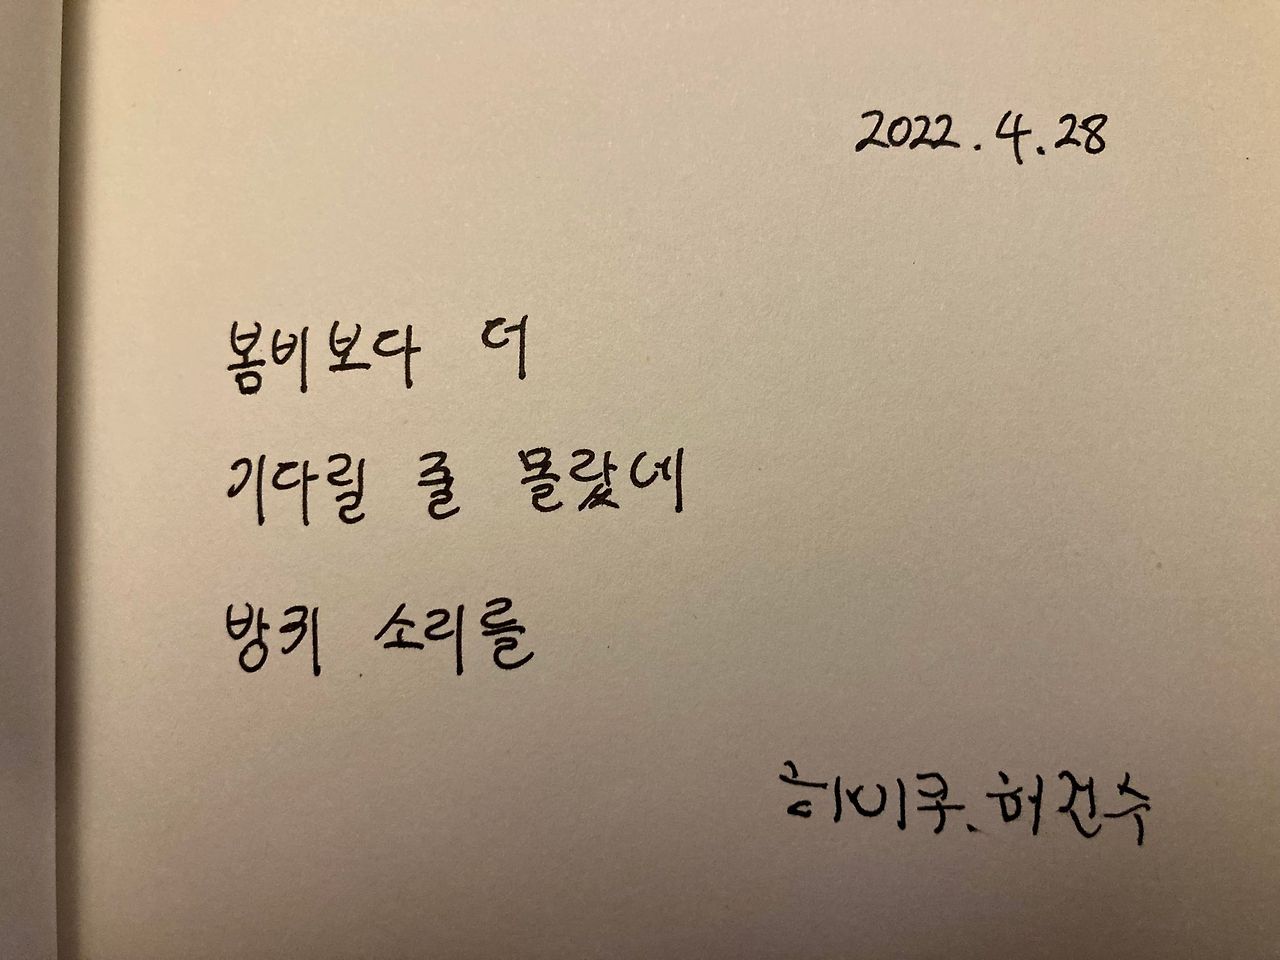 2022.4.28
봄비보다 더
기다릴 줄 몰랐네
방귀 소리를
히비쿠. 허건수